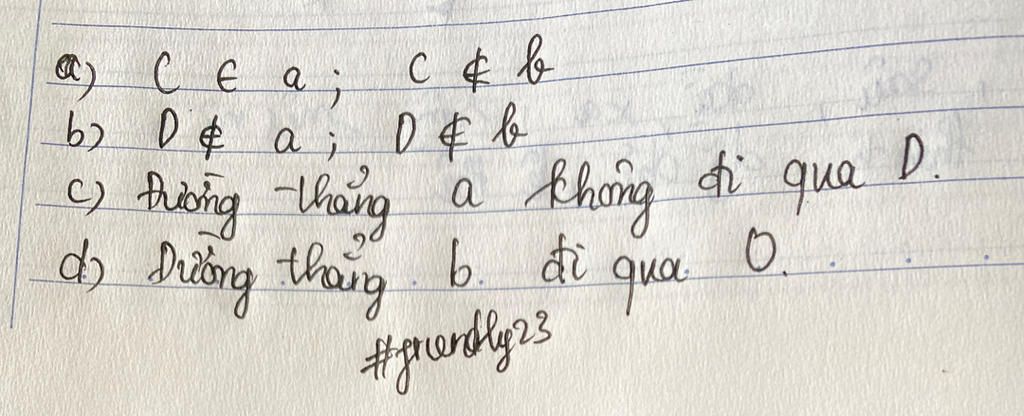 a) C ∈ a ; C ∉ b
b) D ∉ a ; D ∉ b
c) Đường thẳng a không đi qua D.
d) Đường thẳng b đi qua O.
#friendly23